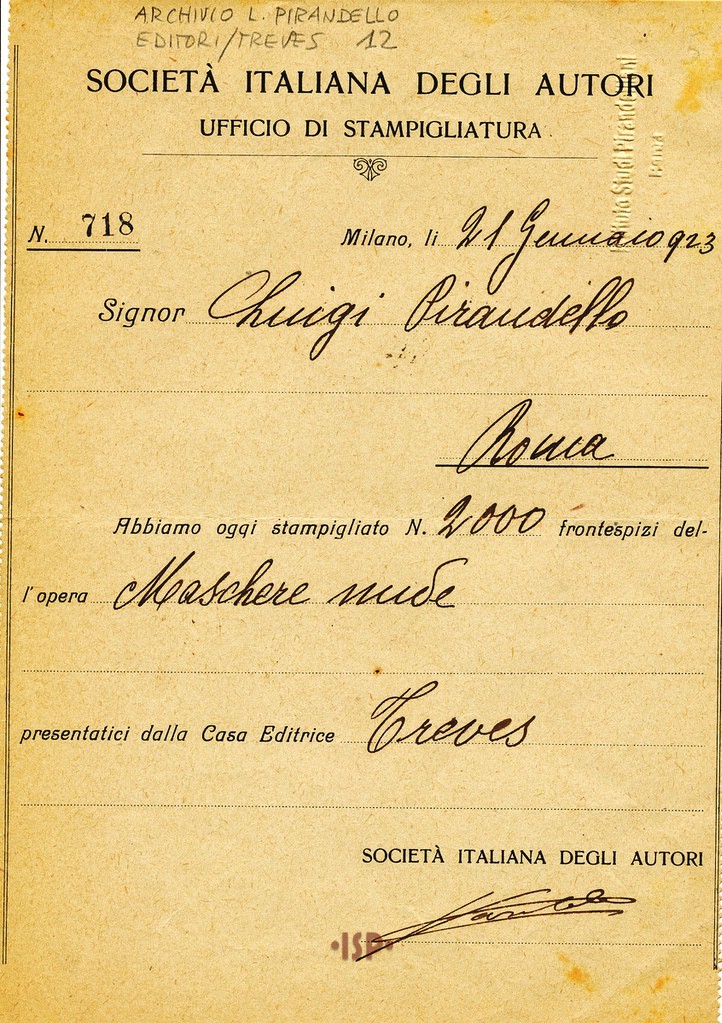 ARCHIVIO L. PIRANDELLO
EDITORI/TREVES 12
SOCIETÀ ITALIANA DEGLI AUTORI
UFFICIO DI STAMPIGLIATURA
N. 718
Milano, li 21 Gennaio 923
Signor Luigi Pirandello
Roma
Abbiamo oggi stampigliato N. 2000 frontespizi del-
l'opera Maschere nude
presentatici dalla Casa Editrice Treves
SOCIETÀ ITALIANA DEGLI AUTORI
·ISP·
Studi Pirandelliani
Roma